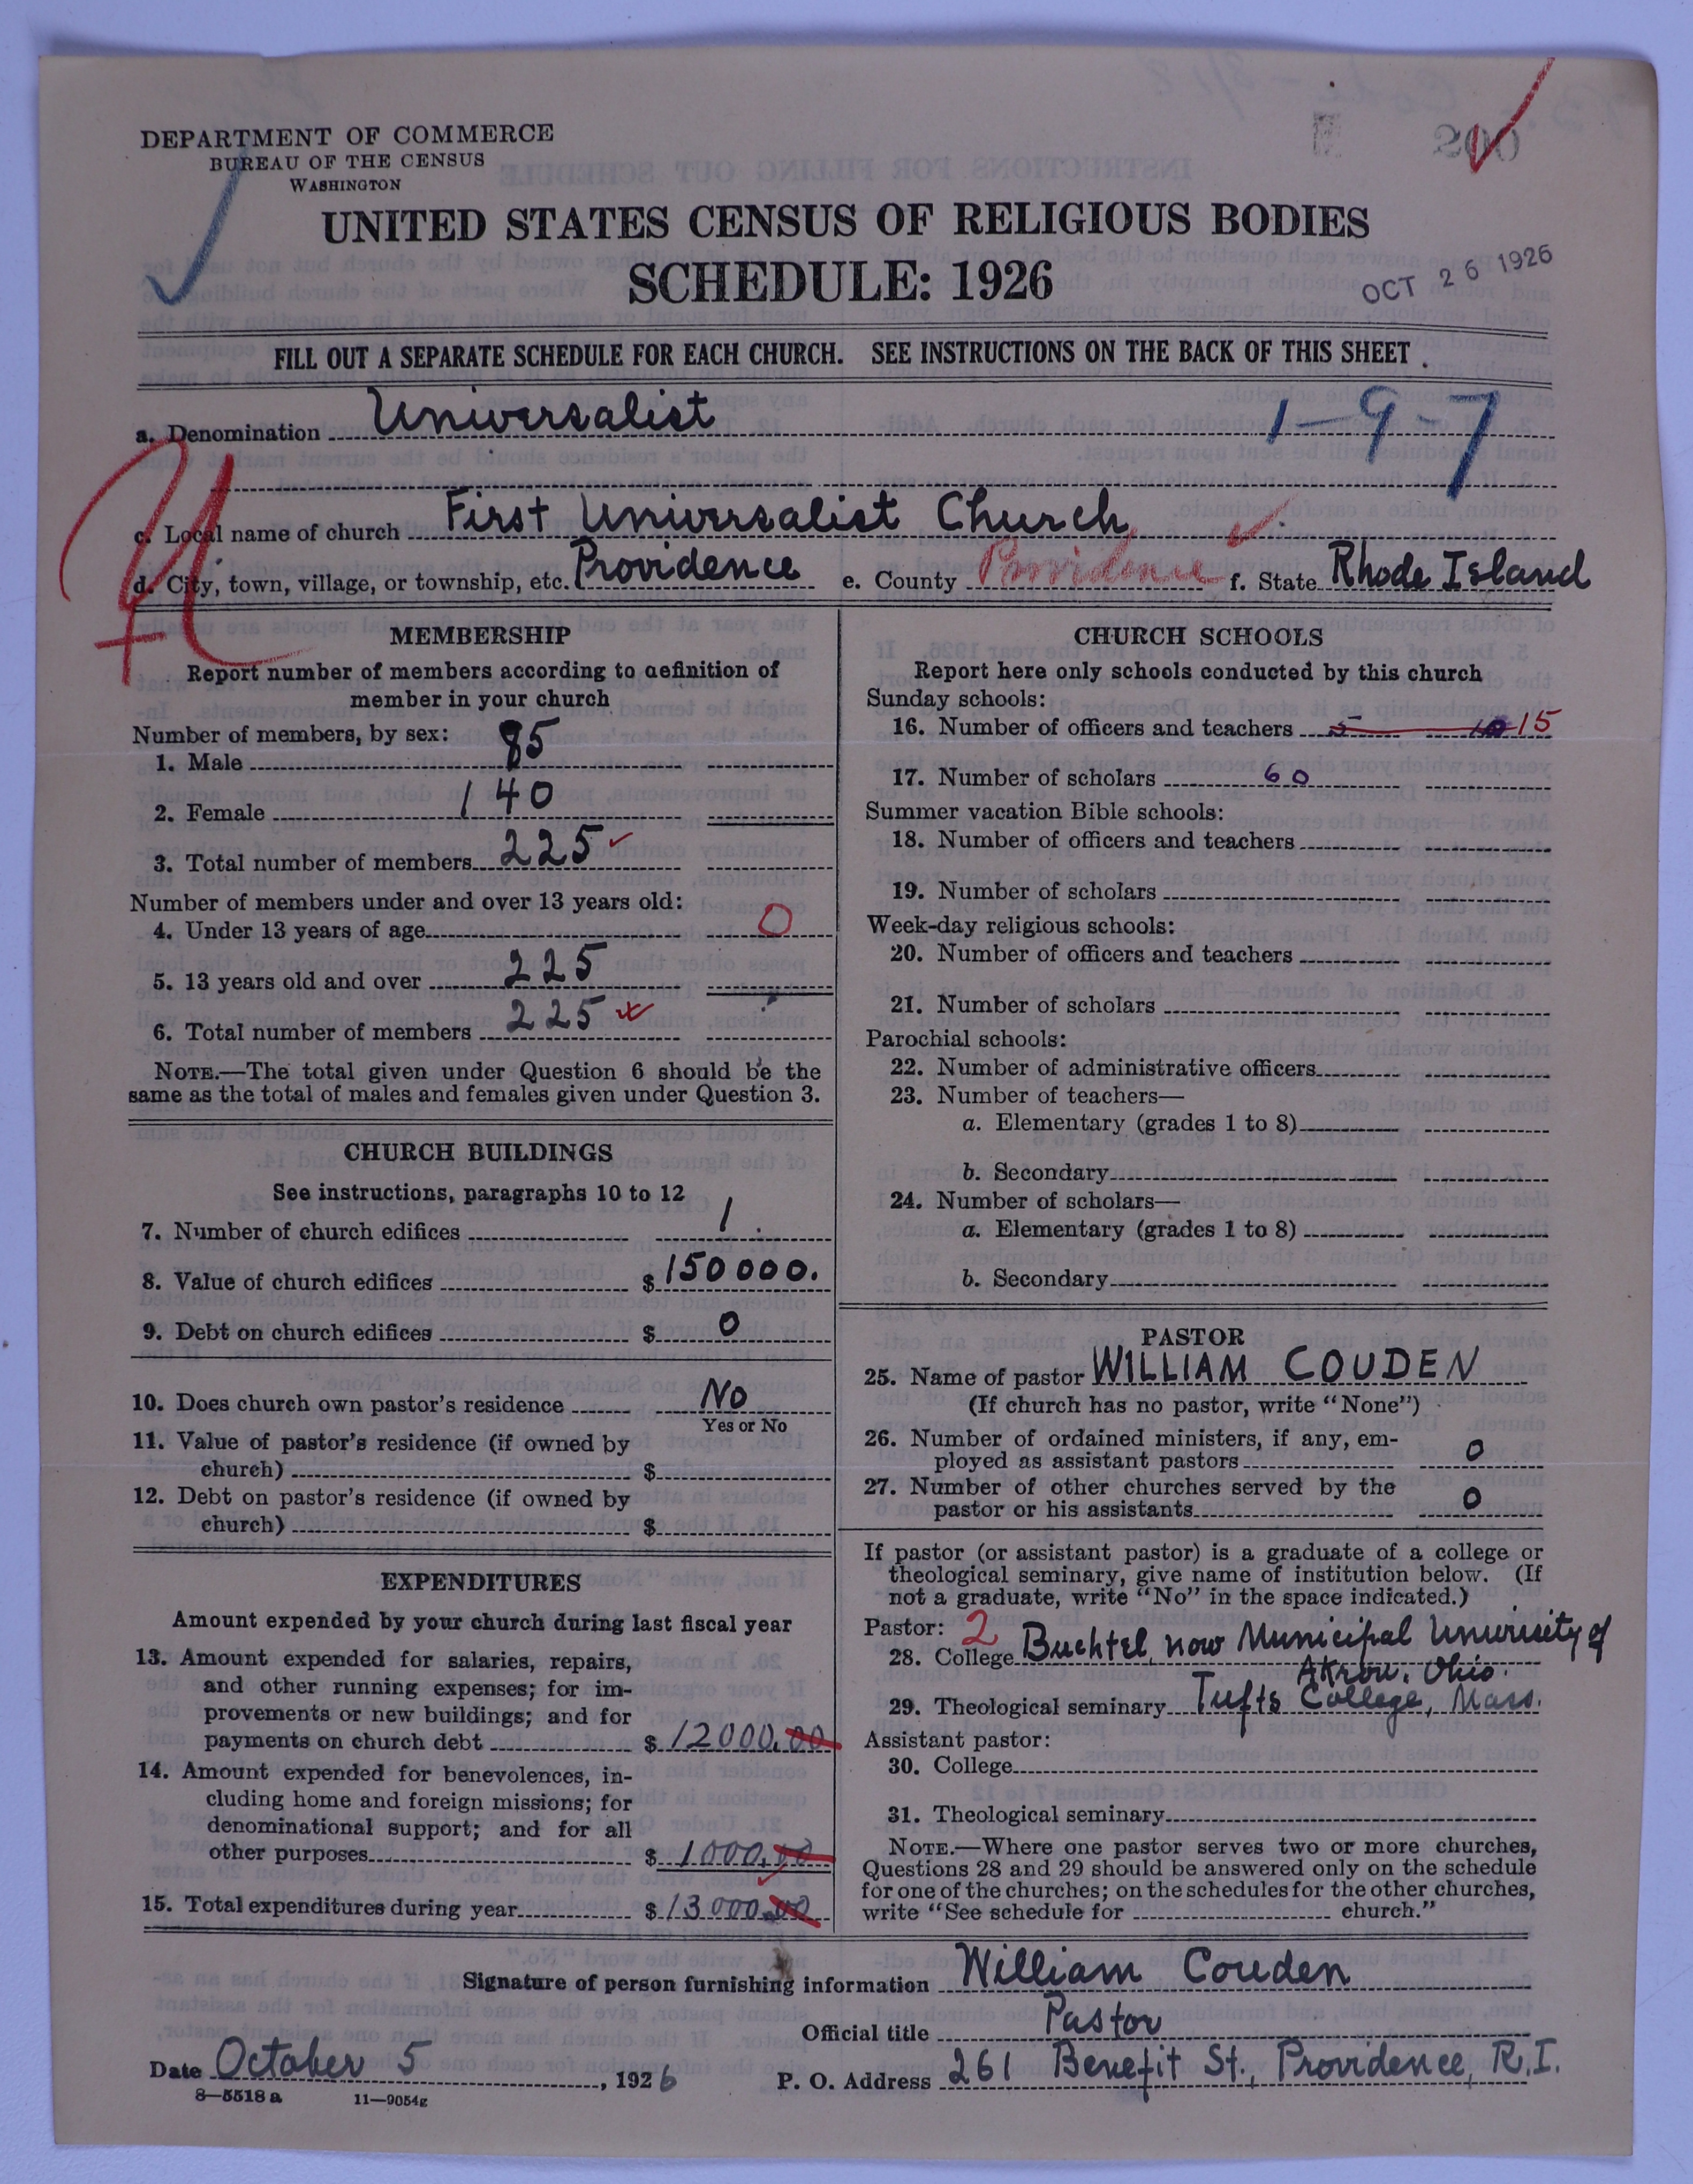 DEPARTMENT OF COMMERCE
BUREAU OF THE CENSUS
WASHINGTON
200
UNITED STATES CENSUS OF RELIGIOUS BODIES
SCHEDULE: 1926
OCT 26 1926
FILL OUT A SEPARATE SCHEDULE FOR EACH CHURCH. SEE INSTRUCTIONS ON THE BACK OF THIS SHEET.
a. Denomination Universalist 1-9-7
c. Local name of church First Universalist Church
d. City, town, village, or township, etc. Providence e. County Providence f. State Rhode Island
MEMBERSHIP
Report number of members according to definition of
member in your church
Number of members, by sex:
1. Male 85
2. Female 140
3. Total number of members 225
Number of members under and over 13 years old:
4. Under 13 years of age 0
5. 13 years old and over 225
6. Total number of members 225
NOTE.—The total given under Question 6 should be the
same as the total of males and females given under Question 3.
CHURCH BUILDINGS
See instructions, paragraphs 10 to 12
7. Number of church edifices 1
8. Value of church edifices $ 150000.
9. Debt on church edifices $ 0
10. Does church own pastor's residence No
Yes or No
11. Value of pastor's residence (if owned by
church) $
12. Debt on pastor's residence (if owned by
church) $
EXPENDITURES
Amount expended by your church during last fiscal year
13. Amount expended for salaries, repairs,
and other running expenses; for im-
provements or new buildings; and for
payments on church debt $ 12000.00
14. Amount expended for benevolences, in-
cluding home and foreign missions; for
denominational support; and for all
other purposes $ 1000.00
15. Total expenditures during year $ 13000.00
CHURCH SCHOOLS
Report here only schools conducted by this church
Sunday schools:
16. Number of officers and teachers 5 10 15
17. Number of scholars 60
Summer vacation Bible schools:
18. Number of officers and teachers
19. Number of scholars
Week-day religious schools:
20. Number of officers and teachers
21. Number of scholars
Parochial schools:
22. Number of administrative officers
23. Number of teachers—
a. Elementary (grades 1 to 8)
b. Secondary
24. Number of scholars—
a. Elementary (grades 1 to 8)
b. Secondary
PASTOR
25. Name of pastor WILLIAM COUDEN
(If church has no pastor, write "None")
26. Number of ordained ministers, if any, em-
ployed as assistant pastors 0
27. Number of other churches served by the
pastor or his assistants 0
If pastor (or assistant pastor) is a graduate of a college or
theological seminary, give name of institution below. (If
not a graduate, write "No" in the space indicated.)
Pastor: 2
28. College Buchtel, now Municipal University of
Akron, Ohio.
29. Theological seminary Tufts College, Mass.
Assistant pastor:
30. College
31. Theological seminary
NOTE.—Where one pastor serves two or more churches,
Questions 28 and 29 should be answered only on the schedule
for one of the churches; on the schedules for the other churches,
write "See schedule for church."
Signature of person furnishing information William Couden
Official title Pastor
Date October 5, 1926 P. O. Address 261 Benefit St., Providence, R.I.
8—5518 a 11—9054g